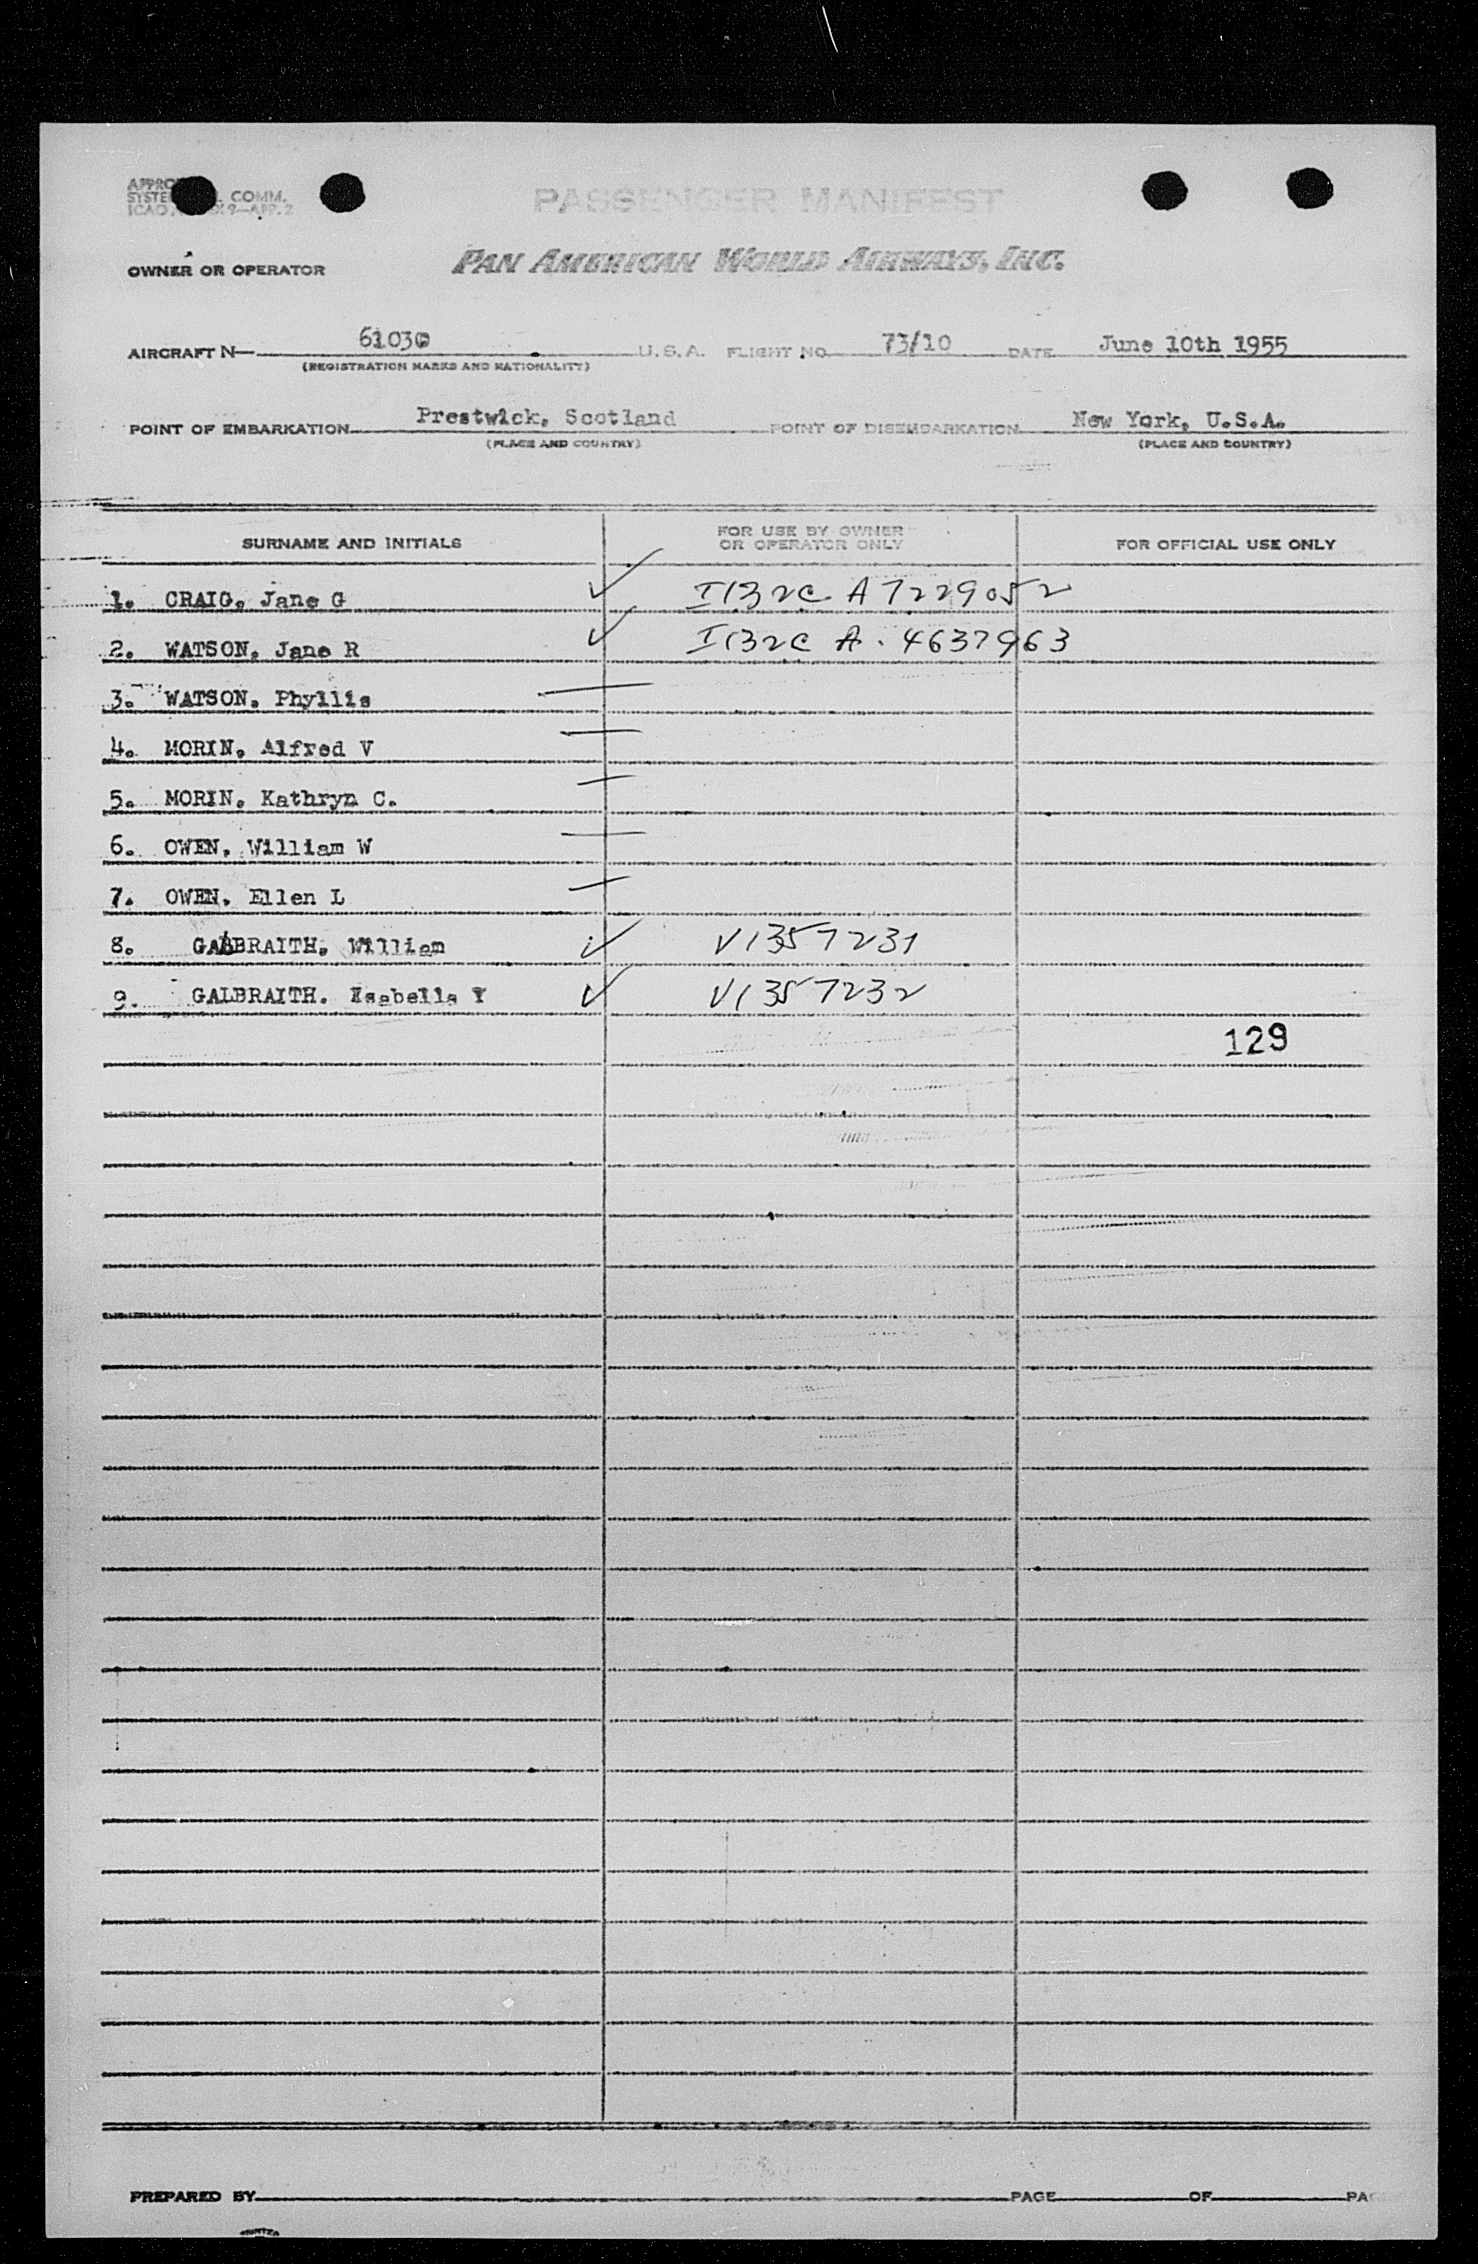 PASSENGER MANIFEST
COMM.
OWNER OR OPERATOR PAN AMERICAN WORLD AIRWAYS, INC.
AIRCRAFT N 6103C U.S.A. FLIGHT NO. 73/10 DATE June 10th 1955
(REGISTRATION MARKS AND NATIONALITY)
POINT OF EMBARKATION Prestwick, Scotland POINT OF DISEMBARKATION New York, U.S.A.
(PLACE AND COUNTRY) (PLACE AND COUNTRY)
SURNAME AND INITIALS FOR USE BY OWNER OR OPERATOR ONLY FOR OFFICIAL USE ONLY
1. CRAIG, Jane G ✓ I132C A7229052
2. WATSON, Jane R ✓ I132C A. 4637963
3. WATSON, Phyllis —
4. MORIN, Alfred V —
5. MORIN, Kathryn C. —
6. OWEN, William W —
7. OWEN, Ellen L —
8. GALBRAITH, William ✓ V1357231
9. GALBRAITH. Isabella Y ✓ V1357232
129
PREPARED BY PAGE OF